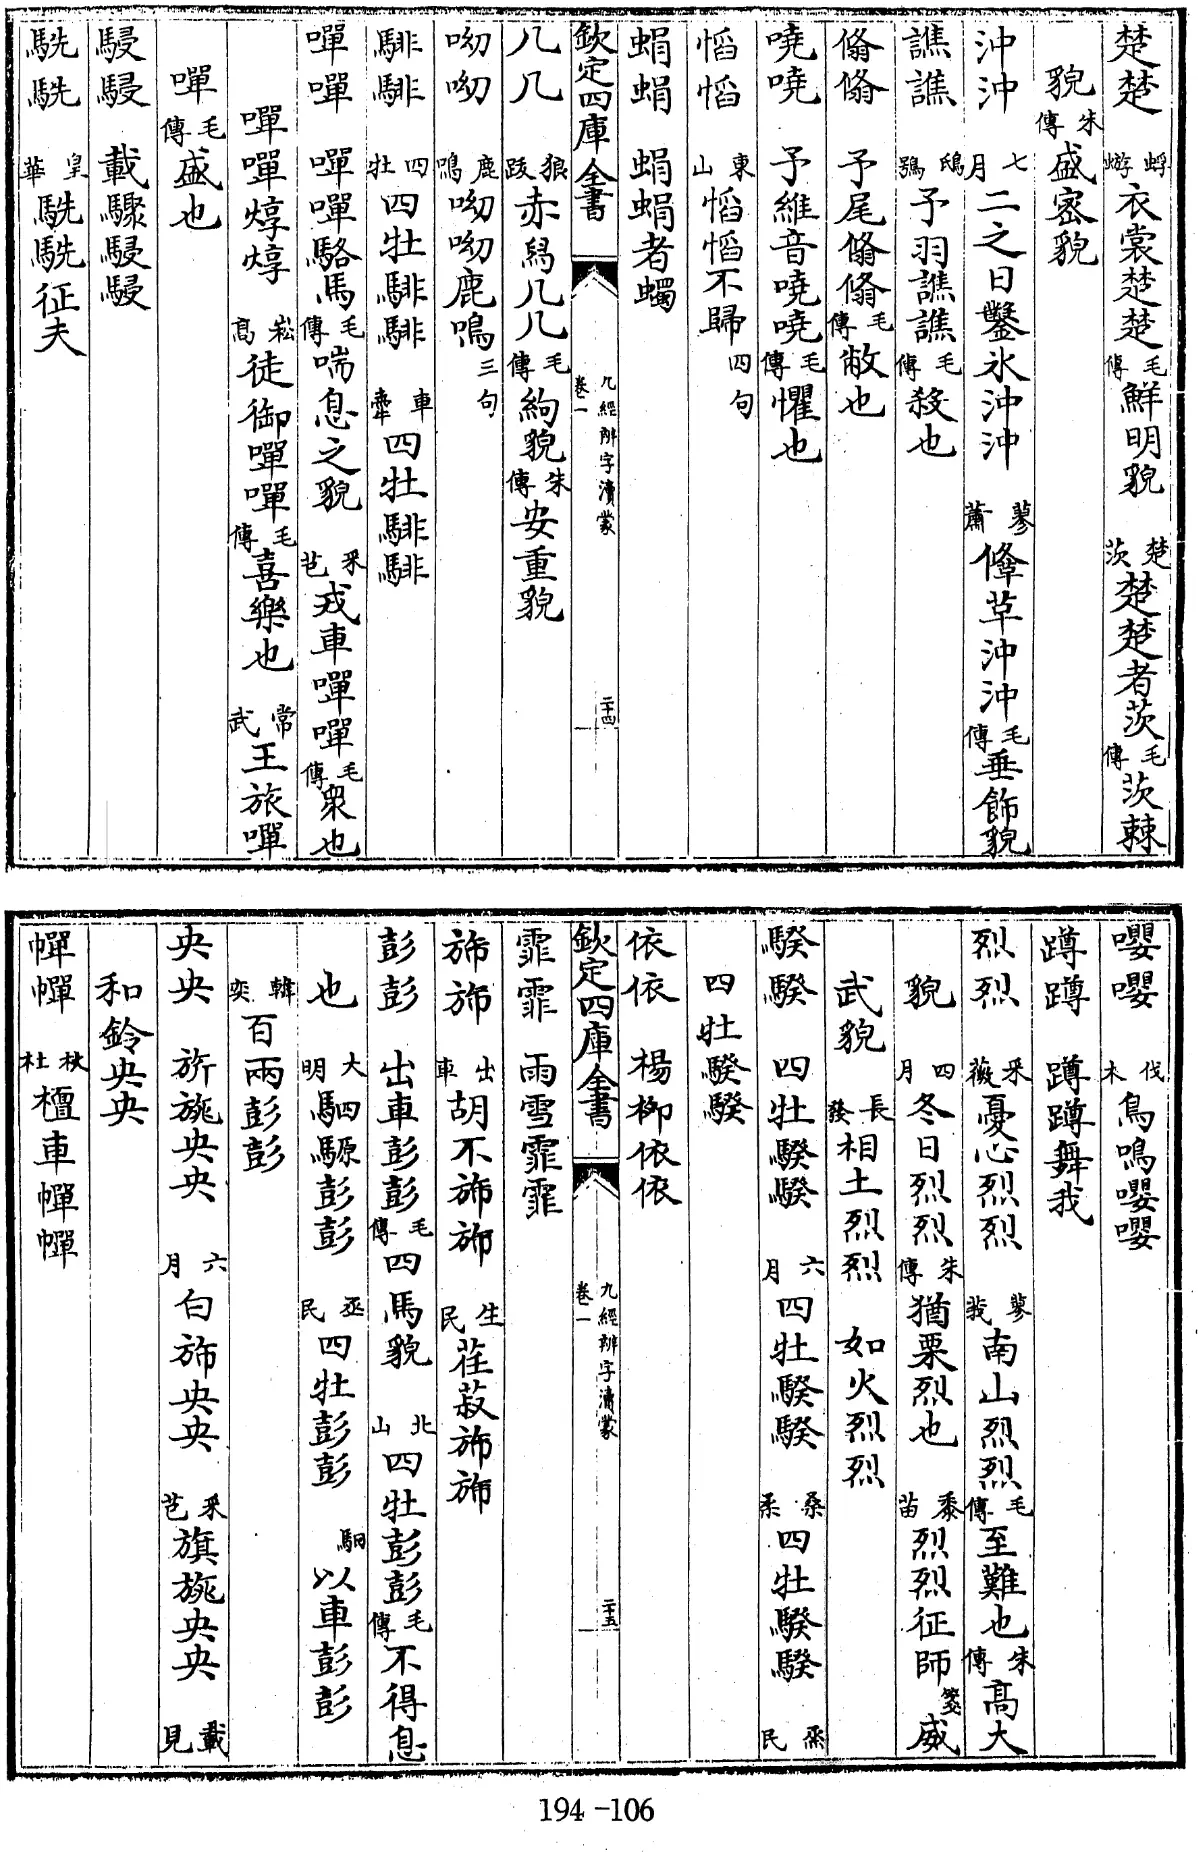 楚楚 蜉蝣衣裳楚楚毛傳鮮明貌 楚茨楚楚者茨毛傳茨棘
貌朱傳盛密貌
沖沖 七月二之日鑿冰沖沖 蓼蕭鞗革沖沖毛傳垂飾貌
譙譙 鴟鴞予羽譙譙毛傳殺也
翛翛 予尾翛翛毛傳敝也
嘵嘵 予維音嘵嘵毛傳懼也
慆慆 東山慆慆不歸四句
蜎蜎 蜎蜎者蠋
欽定四庫全書 九經辨字瀆蒙 卷一 二十四
几几 狼跋赤舄几几毛傳絇貌朱傳安重貌
呦呦 鹿鳴呦呦鹿鳴三句
騑騑 四牡四牡騑騑 車舝四牡騑騑
嘽嘽 嘽嘽駱馬毛傳喘息之貌 采芑戎車嘽嘽毛傳衆也
嘽嘽焞焞 崧高徒御嘽嘽毛傳喜樂也 常武王旅嘽
嘽毛傳盛也
駸駸 載驟駸駸
駪駪 皇華駪駪征夫
嚶嚶 伐木鳥鳴嚶嚶
蹲蹲 蹲蹲舞我
烈烈 采薇憂心烈烈 蓼莪南山烈烈毛傳至難也朱傳高大
貌 四月冬日烈烈朱傳猶栗烈也 黍苗烈烈征師箋威
武貌 長發相土烈烈 如火烈烈
騤騤 四牡騤騤 六月四牡騤騤 桑柔四牡騤騤 烝民
四牡騤騤
依依 楊柳依依
欽定四庫全書 九經辨字瀆蒙 卷一 二十五
霏霏 雨雪霏霏
斾斾 出車胡不斾斾 生民荏菽斾斾
彭彭 出車彭彭毛傳四馬貌 北山四牡彭彭毛傳不得息
也 大明駟騵彭彭 烝民四牡彭彭 駉以車彭彭
韓奕百兩彭彭
央央 旂旐央央 六月白斾央央 采芑旗旐央央 載見
和鈴央央
幝幝 杕杜檀車幝幝
194-106